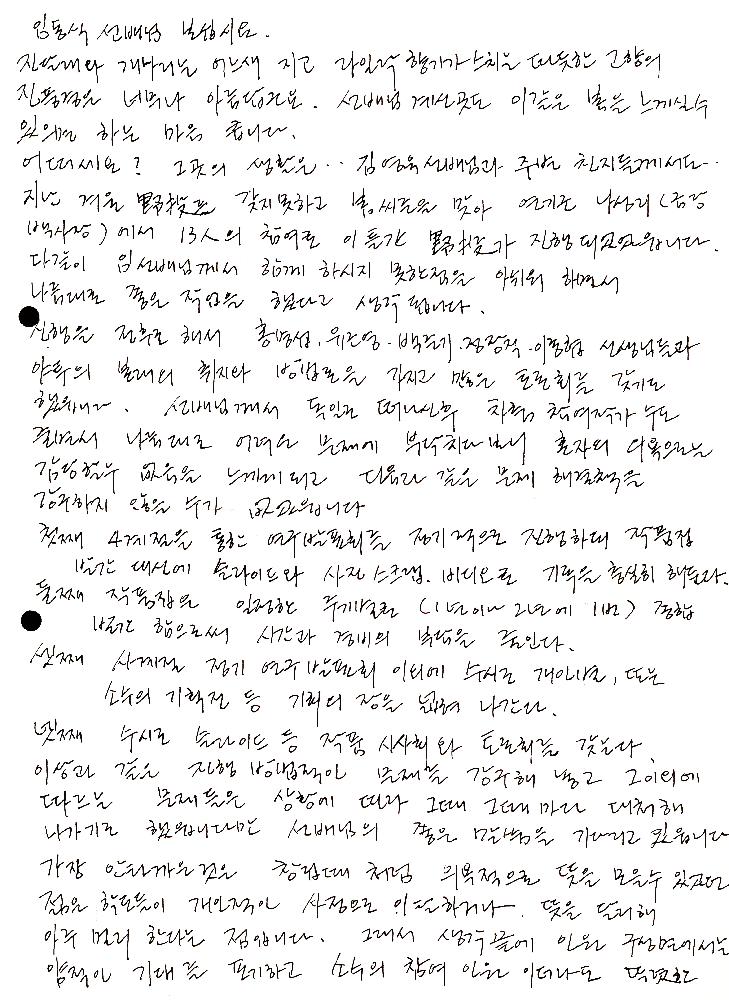 임동식 선배님 보십시요.
진달래와 개나리는 어느새 지고 라일락 향기가 스치는 따뜻한 고향의
진풍경은 너무나 아름답군요. 선배님 계신곳도 이같은 봄을 느끼실수
있으련 하는 마음 큽니다.
어떠세요? 그곳의 생활은.. 김영옥 선배님과 주변 친지들께서도..
지난 겨울 野投도 갖지못하고 봄씨즌을 맞아 여기는 나성리(금강
백사장)에서 13人의 참여로 이틀간 野投가 진행되었었읍니다.
다같이 임선배님께서 함께 하시지 못한점을 아쉬워 하면서
나름대로 좋은 작업을 했다고 생각됩니다.
진행을 전후로 해서 홍명섭, 유근영, 백준기, 정장직, 이종협 선생님들과
야투의 본래의 취지와 방법론을 가지고 많은 토론회를 갖기도
했읍니다. 선배님께서 독일로 떠나신후 차츰 참여작가 수도
줄면서 나름대로 어려운 문제에 부닥치다보니 혼자의 의욕으로는
감당할수 없음을 느끼게되고 다음과 같은 문제 해결책을
강구하지 않을 수가 없었읍니다
첫째 4계절을 통한 연구발표회를 정기적으로 진행하되 작품집
발간 대신에 슬라이드와 사진스크랩, 비디오로 기록을 충실히 해둔다.
둘째 작품집은 일정한 주기별로 (1년이나 2년에 1번) 종합
발간 함으로써 시간과 경비의 부담을 줄인다.
셋째 사계절 정기 연구발표회 이외에 수시로 개인발표, 또는
소수의 기획전 등 기회의 장을 넓혀 나간다.
넷째 수시로 슬라이드 등 작품 시사회와 토론회를 갖는다.
이상과 같은 진행 방법적인 문제를 강구해 놓고 그이외에
따르는 문제들은 상황에 따라 그때 그때마다 대처해
나가기로 했읍니다만 선배님의 좋은 말씀을 기다리고 있읍니다
가장 안타까운것은 창립때 처럼 의욕적으로 뜻을 모을수 있었던
젊은 학도들이 개인적인 사정으로 이탈하거나 뜻을 달리해
아주 멀리 한다는 점입니다. 그래서 생각끝에 인원 구성면에서는
양적인 기대를 포기하고 소수의 참여 인원 이더라도